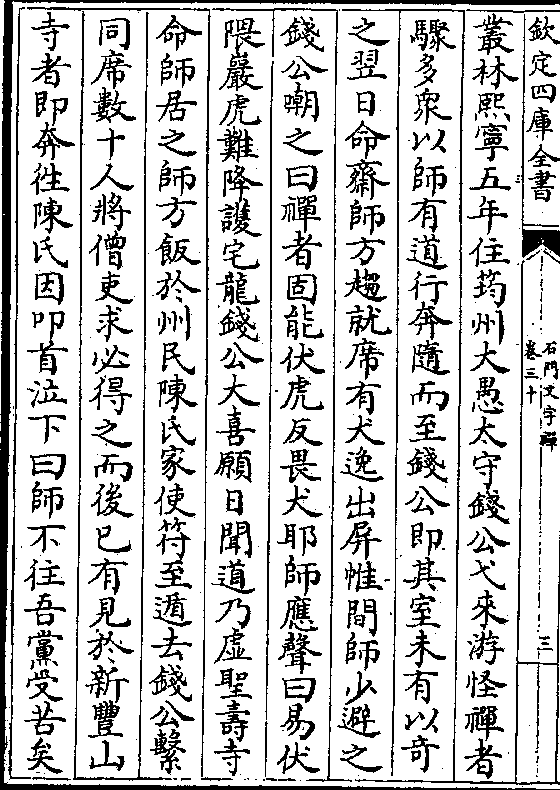 欽定四庫全書
石門文字禪
卷三十
三
叢林熙寧五年住筠州大愚太守錢公弋來游怪禪者
驟多衆以師有道行奔隨而至錢公即其室未有以奇
之翌日命齋師方趨就席有犬逸出屏帷間師少避之
錢公嘲之曰禪者固能伏虎反畏犬耶師應聲曰易伏
隈巖虎難降護宅龍錢公大喜願日聞道乃虛聖壽寺
命師居之師方飯於州民陳氏家使符至遁去錢公繫
同席數十人將僧吏求必得之而後已有見於新豐山
寺者即奔徃陳氏因叩首泣下曰師不往吾黨受苦矣